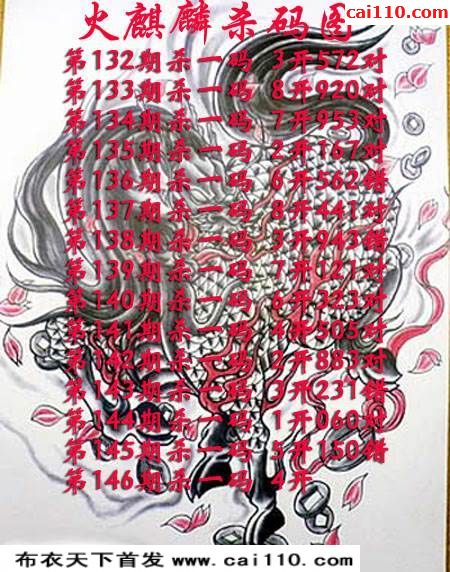 cai110.com
火麒麟杀码图
第132期杀一码 3开572对
第133期杀一码 8开920对
第134期杀一码 7开953对
第135期杀一码 2开167对
第136期杀一码 6开562错
第137期杀一码 8开441对
第138期杀一码 3开943错
第139期杀一码 7开121对
第140期杀一码 6开323对
第141期杀一码 4开505对
第142期杀一码 2开883对
第143期杀一码 3开231错
第144期杀一码 1开060对
第145期杀一码 5开150错
第146期杀一码 4开
布衣天下首发 www.cai110.com